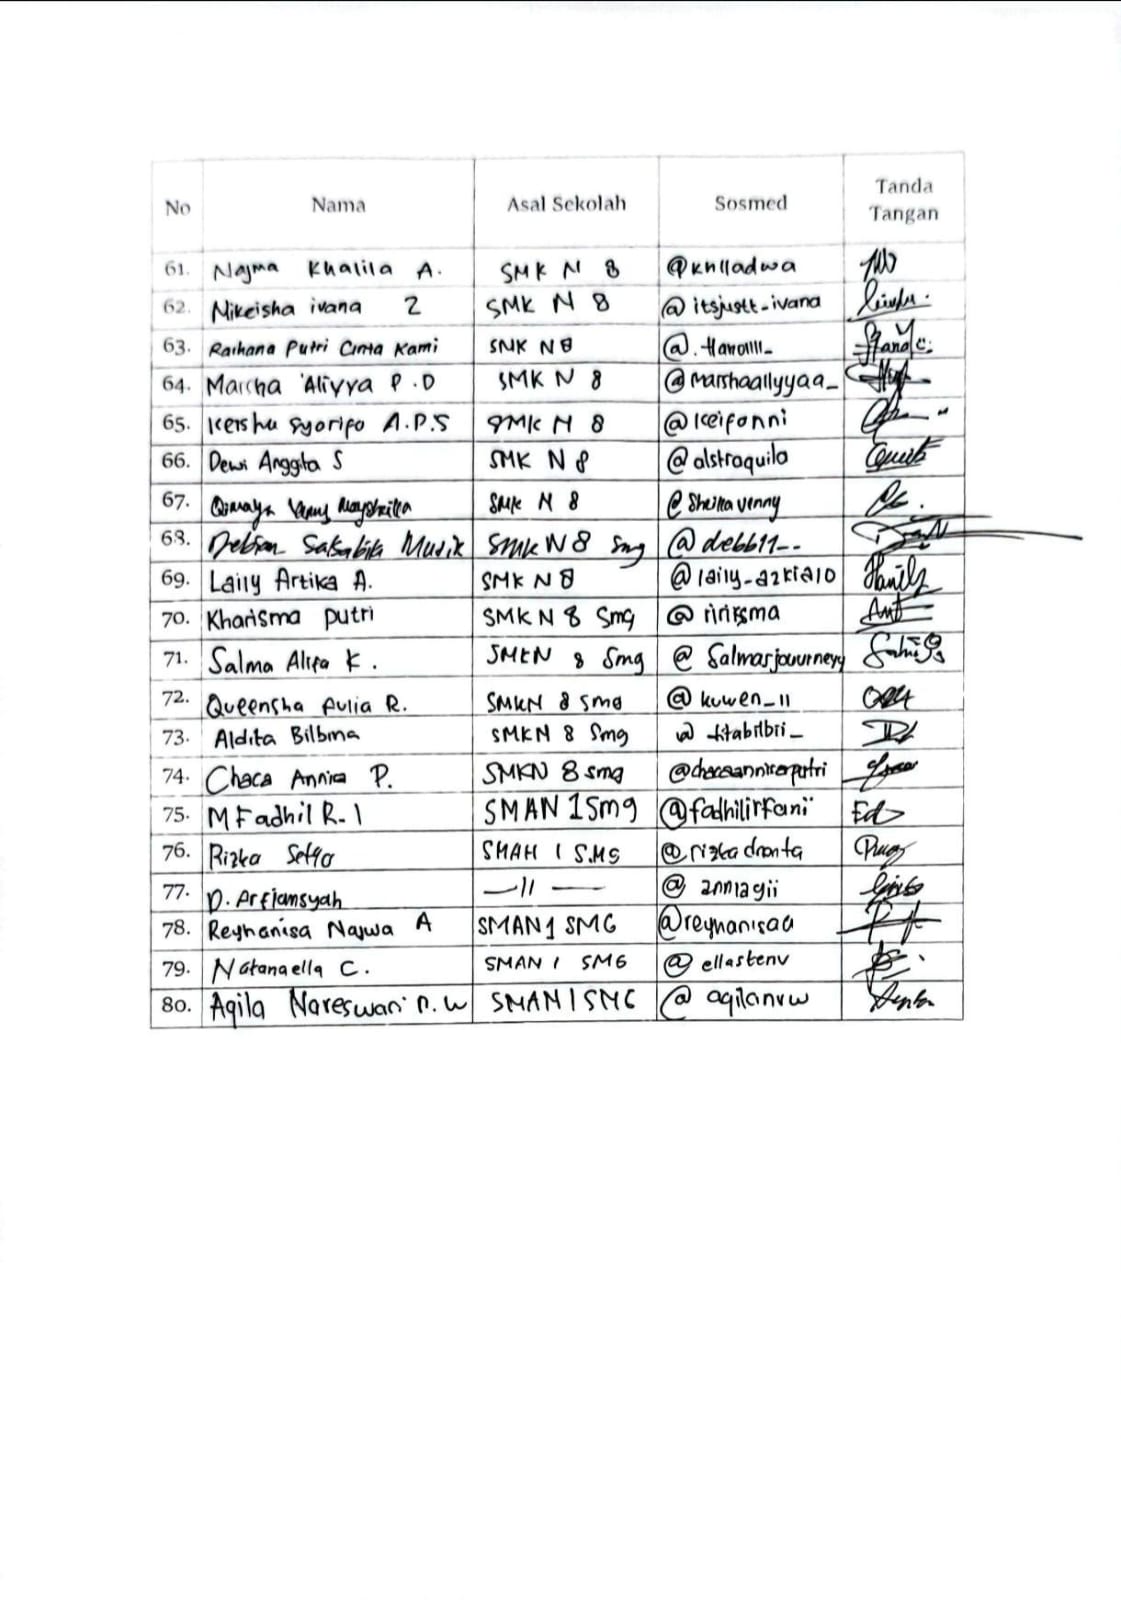 No Nama Asal Sekolah Sosmed Tanda Tangan
61. Najma Khalila A. SMK N 8 @knlladwa
62. Nikeisha ivana Z SMK N 8 @itsjustt_ivana
63. Raihana Putri Cinta Kami SMK N 8
64. Marcha 'Aliyya P.D SMK N 8 @marshaallyyaa_
65. SMK N 8 @keifanni
66. Dewi Anggita S SMK N 8 @alstraquila
67. SMK N 8 @sheikavenny
68. Debian Salsabila SMK N 8 Smg @debb11__
69. Laily Artika A. SMK N 8
70. Kharisma putri SMK N 8 Smg @ririsma
71. Salma Alifa K. SMKN 8 Smg @Salmasjouurneyy
72. Queensha Aulia R. SMKN 8 smg @kuwen_11
73. Aldita Bilbina SMKN 8 Smg
74. Chaca Annisa P. SMKN 8 smg @chacaannisaputri
75. M Fadhil R.I SMAN 1 Smg @fadhilirfani
76. Rizka SMAN 1 SMG
77. D. Arfiansyah —11— @anniagii
78. Reyhanisa Najwa A SMAN 1 SMG @reyhanisaa
79. Natanaella C. SMAN 1 SMG @ellastenv
80. Aqila Nareswari n.w SMAN 1 SMG @aqilanrw